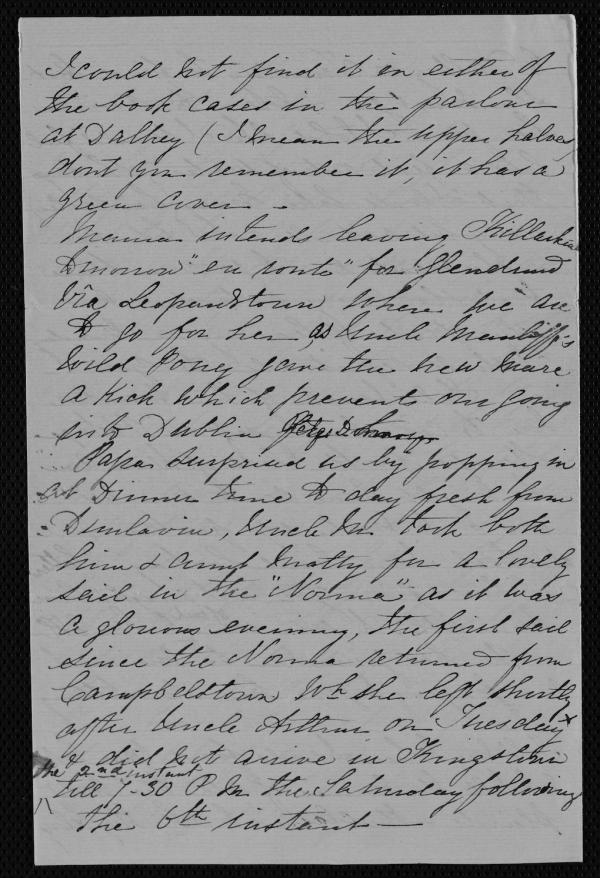 I could not find it in either of
the book cases in the parlour
at Dalkey (I mean the upper halves)
dont you remember it, it has a
green cover.
Mama intends leaving
tomorrow "en route" for Glendruid
Via Leopardstown where we are
to go for her, as Uncle
Wild Poney gave the new Mare
a kick which prevents our going
into Dublin
Papa surprised us by popping in
at Dinner time to day fresh from
Dunlavin, Uncle M took both
him & aunt Matty for a lovely
sail in the "Norma" as it was
a glorious evening, the first sail
since the Norma returned from
Campbelstown wh she left shortly
after Uncle Arthur on Tuesday x
the 2nd instant
& did not arrive in Kingstown
till 7-30 P M the Saturday following
the 6th instant —